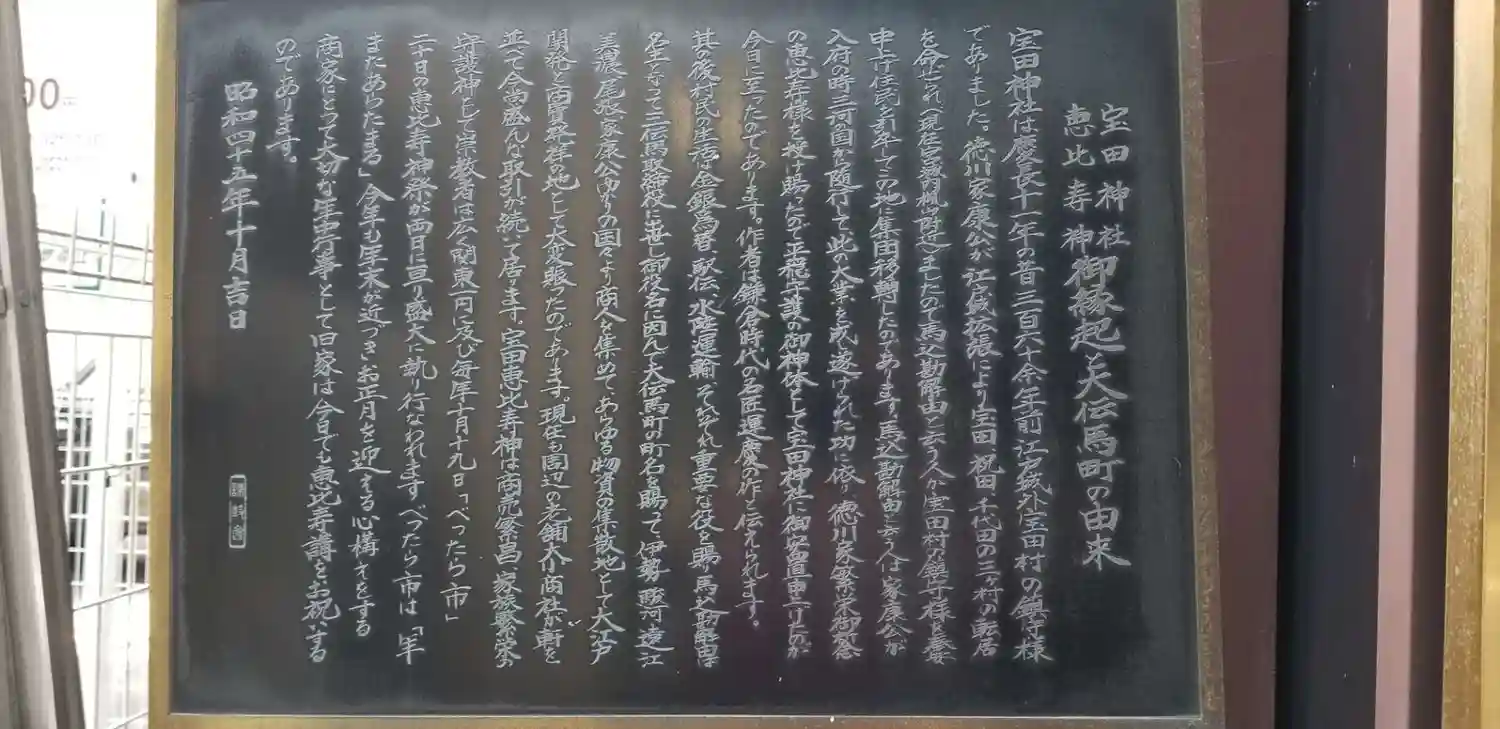 宝田神社
恵比寿神
御縁起と大伝馬町の由来
宝田神社は慶長十一年の昔三百六十余年前江戸城外宝田村の鎮守様
でありました。徳川家康公が江戸城拡張により宝田、祝田、千代田の三ヶ村の転居
を命ぜられ(現在宮城内楓山附近)ましたので馬込勘解由と云う人が宝田村の鎮守様を奉安
申上げ住民を引率してこの地に集団移転したのであります。馬込勘解由と云う人は家康公が
入府の時三河の国から随行して此の大業を成し遂げられた功に依り、徳川家繁栄御祈念
の恵比寿様を授け賜ったので平穏守護の御神体として宝田神社に御安置申上げたのが
今日に至ったのであります。作者は鎌倉時代の名匠運慶の作と伝えられます。
其の後村民の生活は金銀為替、駅伝、水陸運輸、それぞれ重要な役を賜り馬込勘解由は
名主となって三伝馬取締役に出世し御役名に因んで大伝馬町の町名を賜って、伊勢、駿河、遠江
美濃、尾張、家康公ゆかりの国々より商人を集めて、あらゆる物資の集散地として大江戸
開発と商賈発祥の地として大変賑ったのであります。現在も周辺の老舗大小商社が軒を
並べて今尚盛んな取引が続いて居ります。宝田恵比寿神は商売繁昌、家族繁栄の
守護神として崇敬者は広く関東一円に及び毎年十月十九日「べったら市」
二十日の恵比寿神祭が両日に亘り盛大に執り行なわれます。べったら市は「年
またあらたまる」今年も年末が近づきお正月を迎える心構えをする
商家にとって大切な年中行事として旧家は今日でも恵比寿講をお祝いする
のであります。
昭和四十五年十月吉日